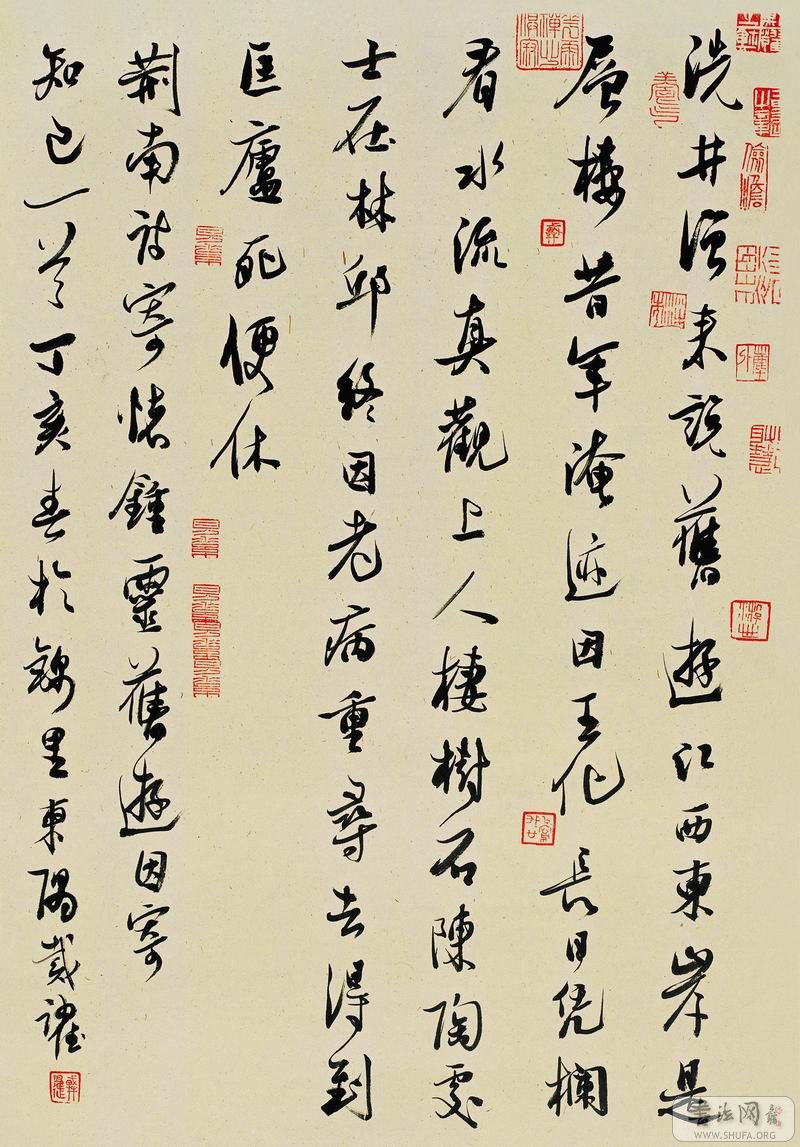 洗井僧来說舊遊江西東岸是
層樓昔年淹迹因王化長日凭欄
看水流真觀上人棲樹石陳陶處
士在林邱終因老病重尋去得到
匡廬死便休
荆南詩寄懷鍾靈舊遊因寄
知己一首丁亥春於錦里東隅戴躍
書法网
WWW.SHUFA.ORG